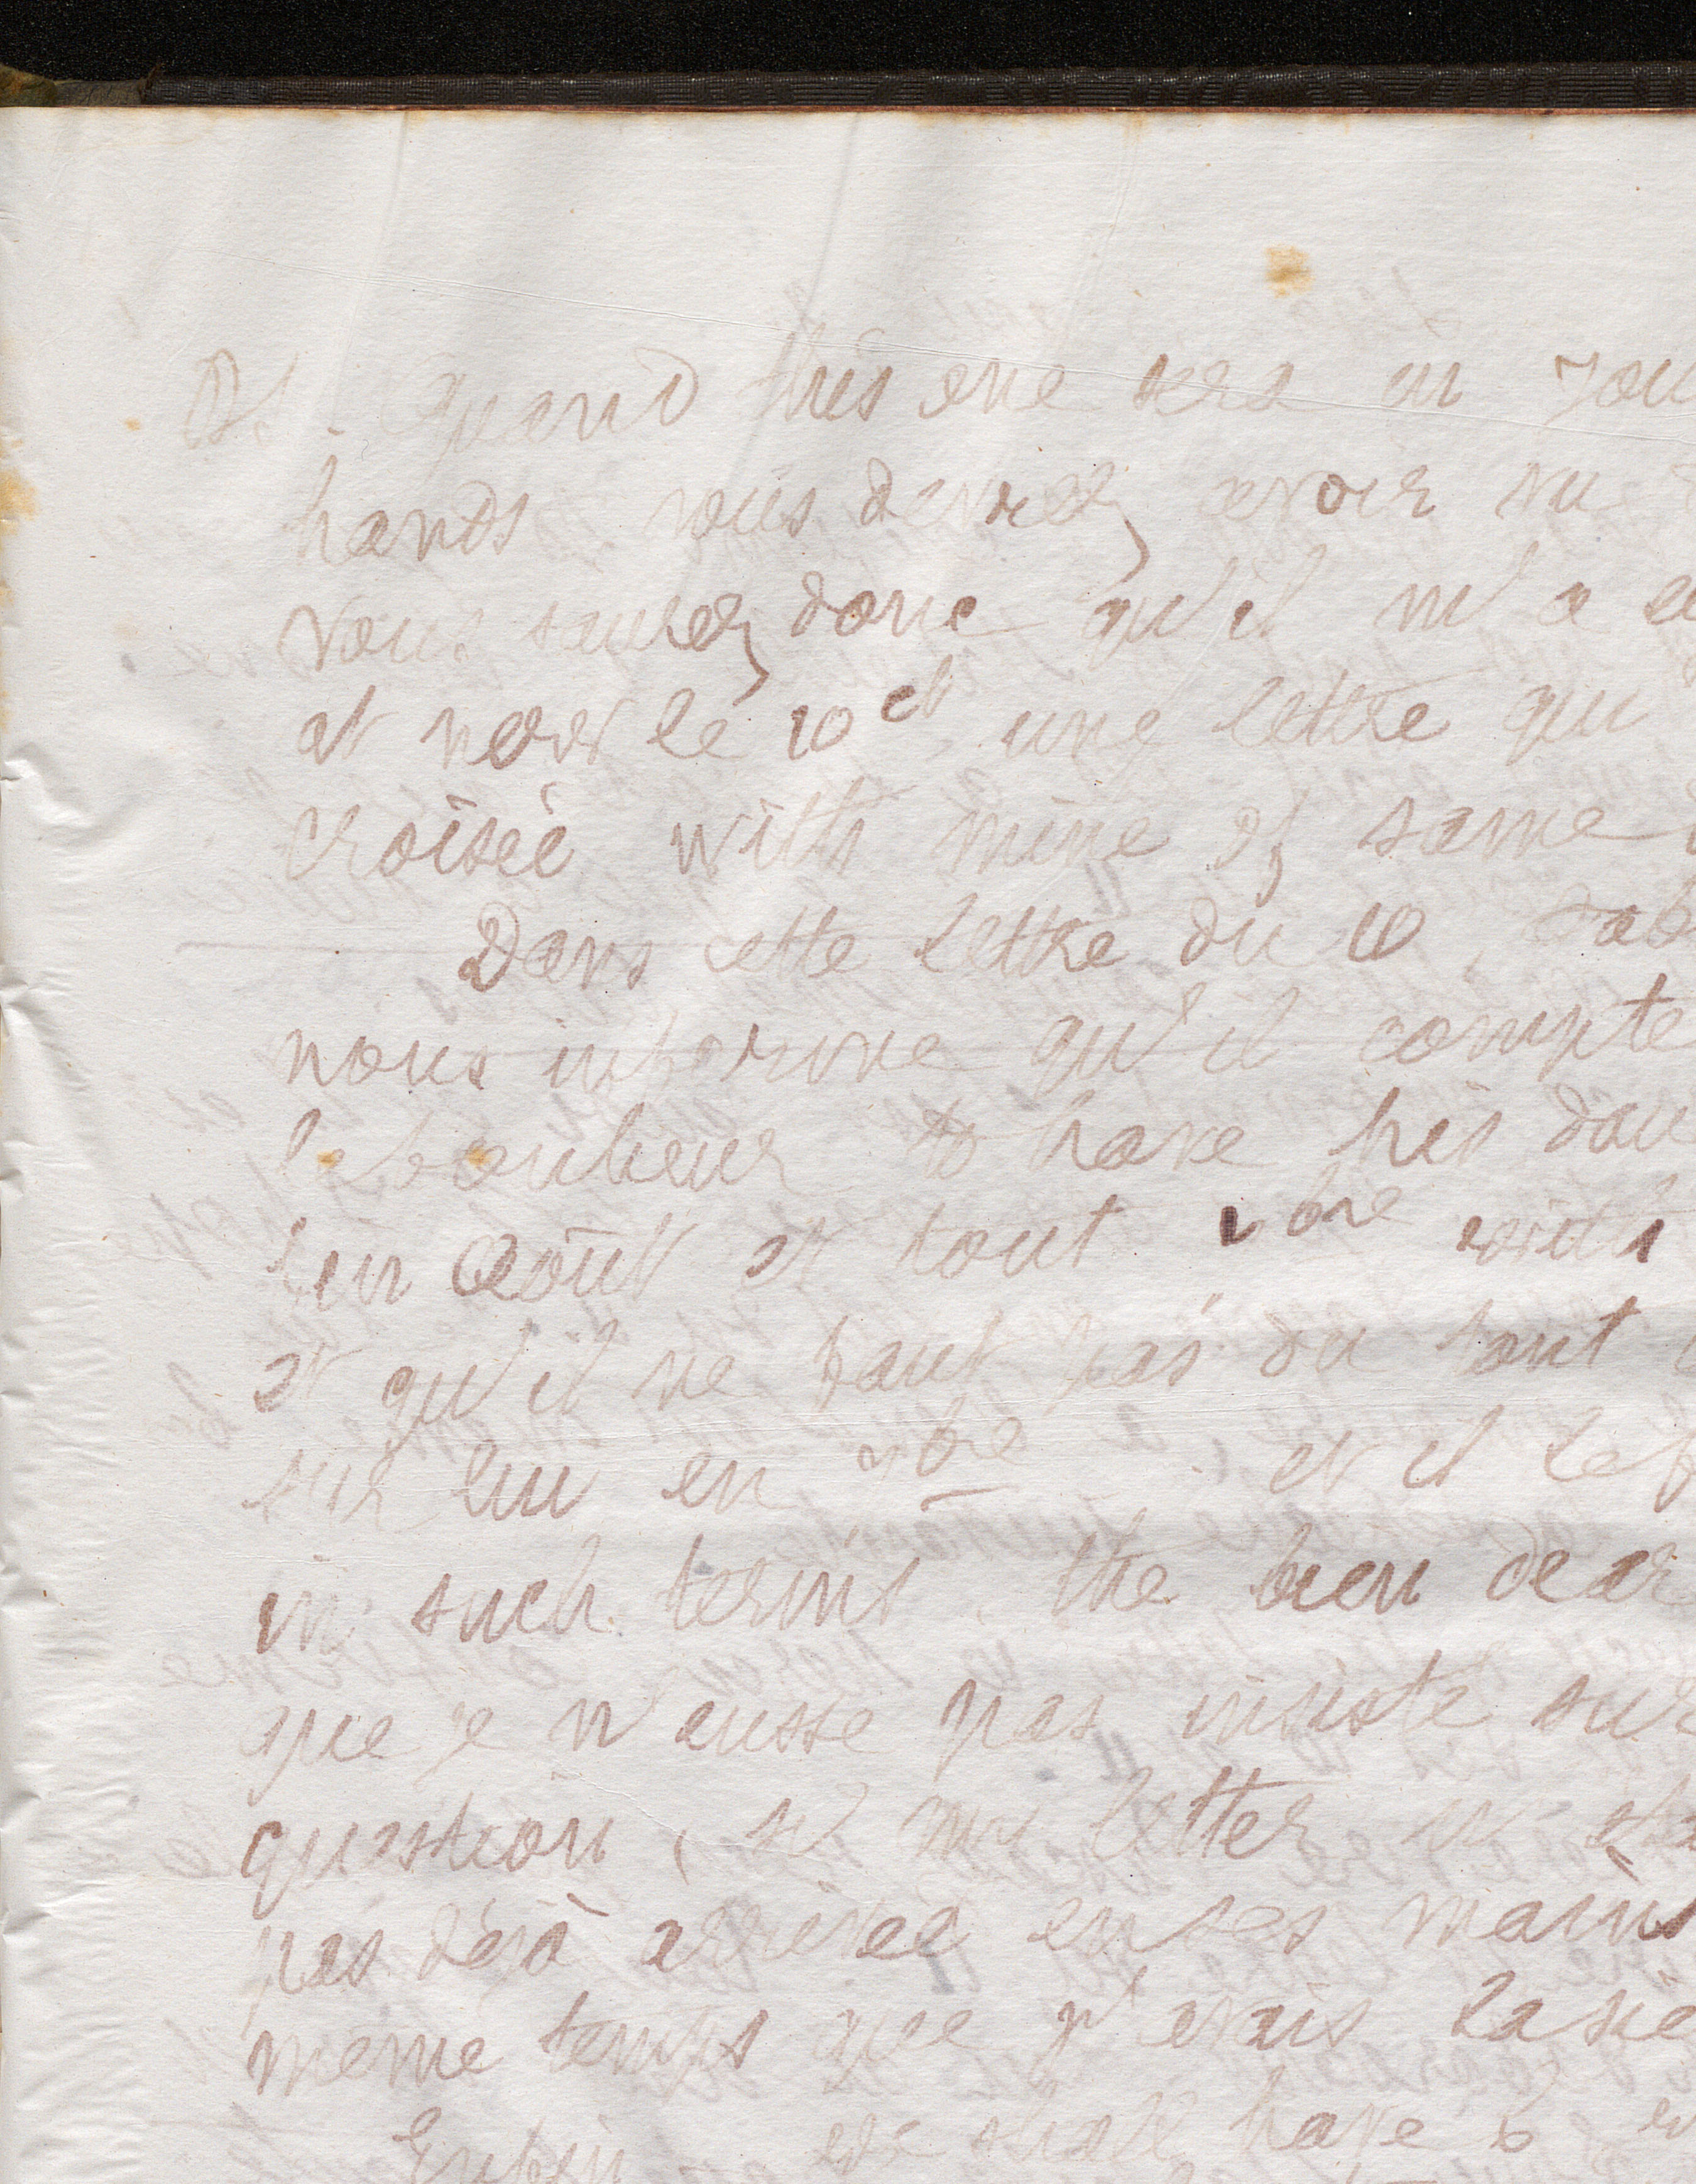 Quand this one sera in you
hands vous devrez avoir vu
Vous saurez donc qu'il m'a e
et le 10 ct une lettre qu'
croisée with mine of same
Dans cette lettre du 10,
nous informe qu'il compte
le bonheur to have his dau
fin Août et tout 7bre with
et qu'il ne faut pas du tout
sur lui en 7bre et il le f
in such terms, the bien dear
que je n'eusse pas insisté sur
question, si my letter n'éta
pas déjà arrivée en ses mains
même temps que j'avais la sie
Enfin we shall have